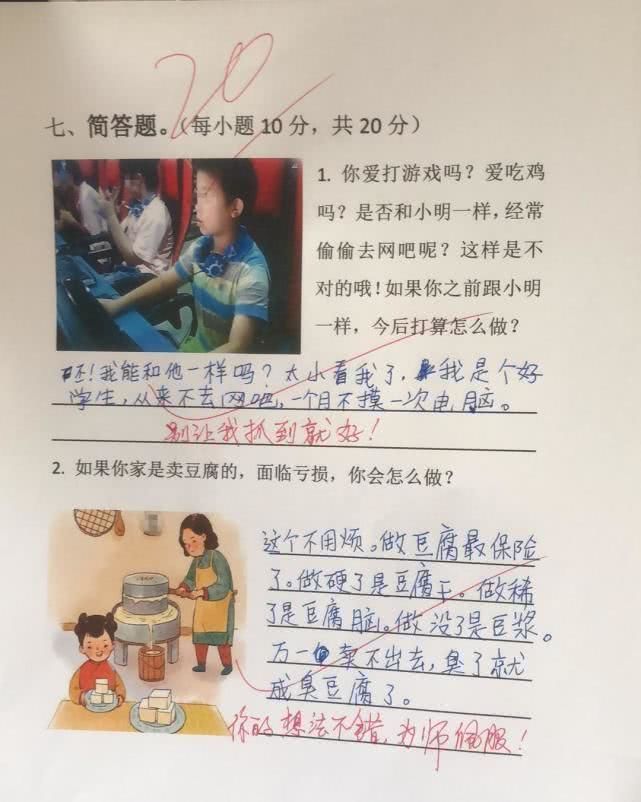 20
七、简答题。（每小题 10 分，共 20 分）
1. 你爱打游戏吗？爱吃鸡
吗？是否和小明一样，经常
偷偷去网吧呢？这样是不
对的哦！如果你之前跟小明
一样，今后打算怎么做？
呸！我能和他一样吗？太小看我了，我是个好
学生，从来不去网吧，一个月不摸一次电脑。
别让我抓到就好！
2. 如果你家是卖豆腐的，面临亏损，你会怎么做？
这个不用烦。做豆腐最保险
了。做硬了是豆腐干。做稀
了是豆腐脑。做没了是豆浆。
万一卖不出去，臭了就
成臭豆腐了。
你的想法不错，为师佩服！